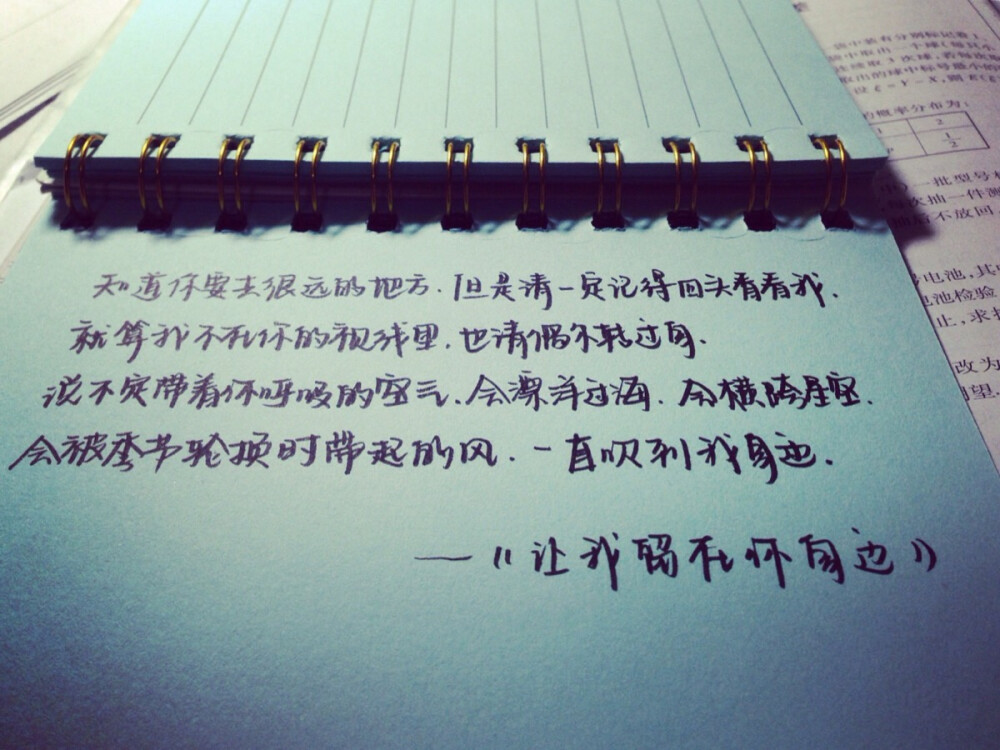 知道你要去很远的地方.但是请一定记得回头看看我.
就算我不在你的视线里.也请偶尔转过身.
说不定带着你呼吸的空气.会漂洋过海.会横跨星空.
会被季节轮换时带起的风.一直吹到我身边.
——《让我留在你身边》
袋中装有分别标记着1、
取出一个球(每只小
续取3次球,若每次取
取出的球中标号最小的
设ξ=Y-X,则E(ξ
的概率分布为:
2
1/2
一批型号
次抽一件测
不放回
电池,其
电池检验
止,求
改为
望.